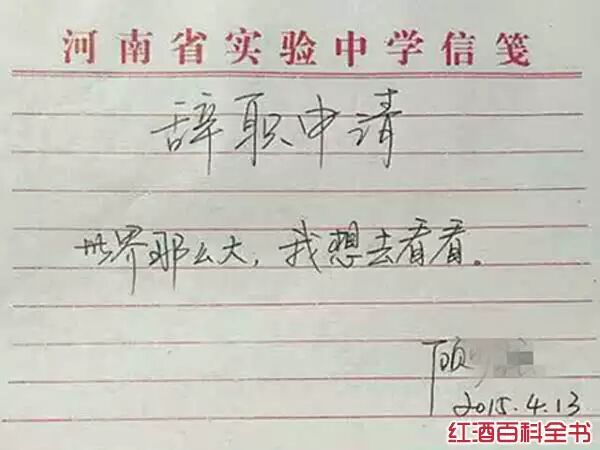 河南省实验中学信笺
辞职申请
世界那么大，我想去看看。
顾
2015.4.13
红酒百科全书